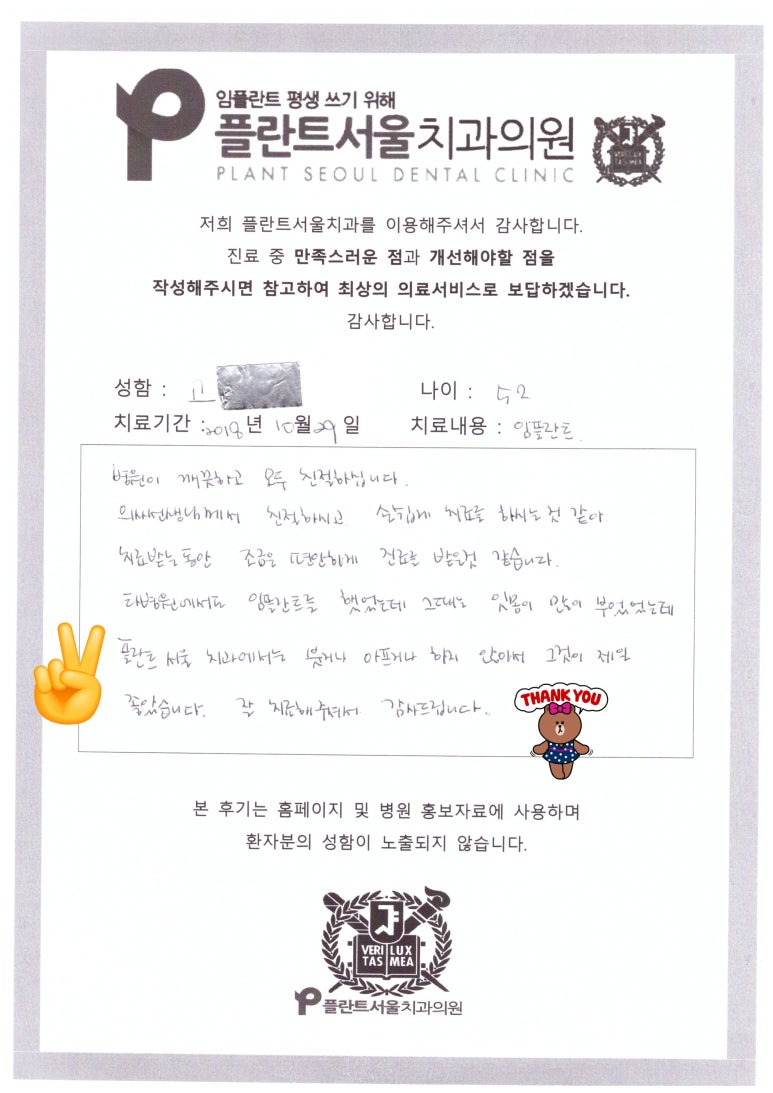 임플란트 평생 쓰기 위해
플란트서울치과의원
PLANT SEOUL DENTAL CLINIC
VERI LUX
TAS MEA
저희 플란트서울치과를 이용해주셔서 감사합니다.
진료 중 만족스러운 점과 개선해야할 점을
작성해주시면 참고하여 최상의 의료서비스로 보답하겠습니다.
감사합니다.
성함 : 고 나이 : 52
치료기간 : 2018년 10월 29일 치료내용 : 임플란트
병원이 깨끗하고 모두 친절하십니다.
의사선생님께서 친절하시고 손쉽게 치료를 하시는것 같아
치료받는동안 조금은 편안하게 진료를 받은것 같습니다.
타병원에서도 임플란트를 했었는데 그때는 잇몸이 많이 부었었는데
플란트 서울 치과에서는 붓거나 아프거나 하지 않아서 그것이 제일
좋았습니다. 잘 치료해주셔서 감사드립니다.
THANK YOU
본 후기는 홈페이지 및 병원 홍보자료에 사용하며
환자분의 성함이 노출되지 않습니다.
VERI LUX
TAS MEA
플란트서울치과의원